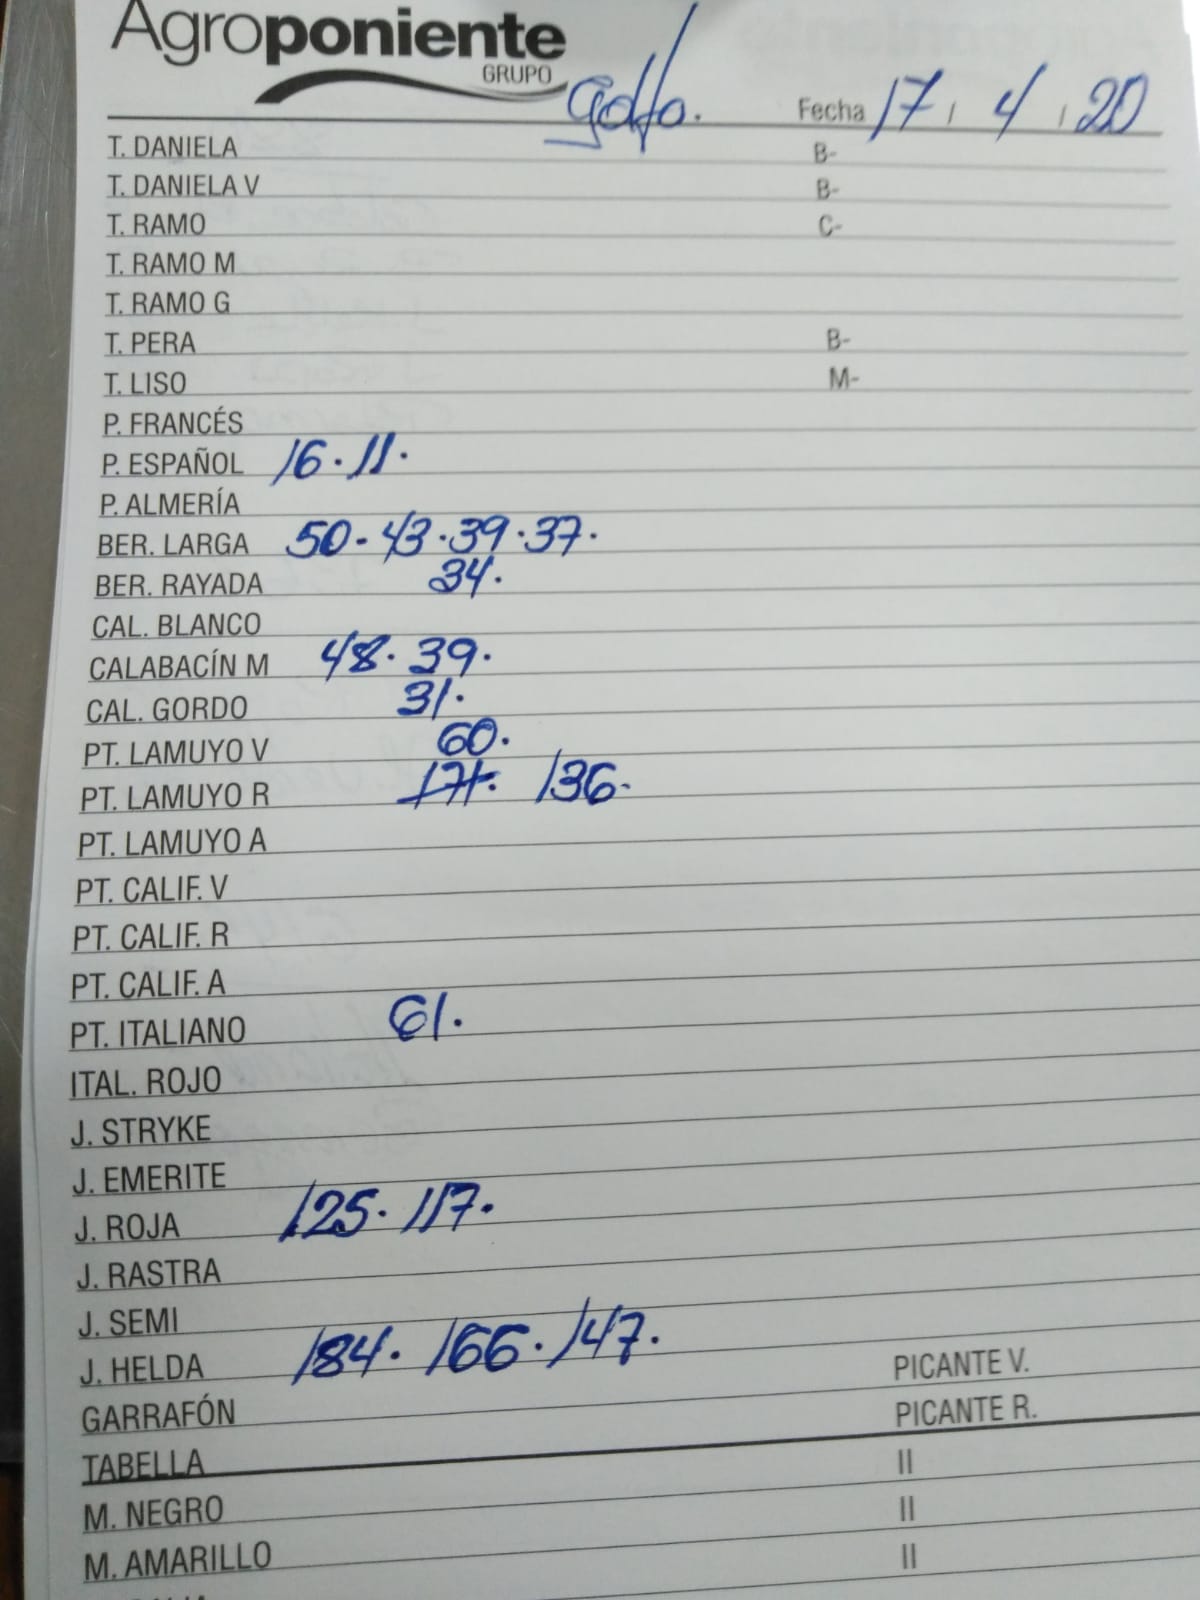 Agroponiente
GRUPO
golfo. Fecha 17 / 4 / 20
T. DANIELA B-
T. DANIELA V B-
T. RAMO C-
T. RAMO M
T. RAMO G
T. PERA B-
T. LISO M-
P. FRANCÉS
P. ESPAÑOL 16. 11.
P. ALMERÍA
BER. LARGA 50. 43. 39. 37.
BER. RAYADA 34.
CAL. BLANCO
CALABACÍN M 48. 39.
CAL. GORDO 31.
PT. LAMUYO V 60.
PT. LAMUYO R 171. 136.
PT. LAMUYO A
PT. CALIF. V
PT. CALIF. R
PT. CALIF. A
PT. ITALIANO 61.
ITAL. ROJO
J. STRYKE
J. EMERITE
J. ROJA 125. 117.
J. RASTRA
J. SEMI
J. HELDA 184. 166. 147. PICANTE V.
GARRAFÓN PICANTE R.
TABELLA II
M. NEGRO II
M. AMARILLO II